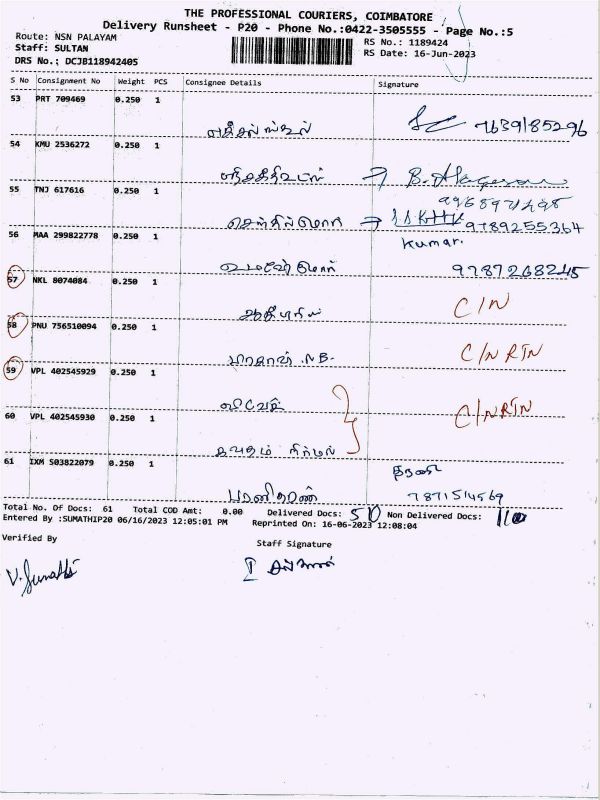 THE PROFESSIONAL COURIERS, COIMBATORE
Delivery Runsheet - P20 - Phone No.:0422-3505555 - Page No.:5
Route: NSN PALAYAM
RS No.: 1189424
Staff: SULTAN
RS Date: 16-Jun-2023
DRS No.: DCJB118942405
S No Consignment No Weight PCS Consignee Details Signature
53 PRT 709469 0.250 1
7639185296
54 KMU 2536272 0.250 1
55 TNJ 617616 0.250 1
செந்தில்
9789255364
56 MAA 299822778 0.250 1
Kumar.
9787268245
57 NKL 8074084 0.250 1
C/N
58 PNU 756510094 0.250 1
N.B. C/N RTN
59 VPL 402545929 0.250 1
C/N RTN
60 VPL 402545930 0.250 1
கவதம் நிர்மல்
61 IXM 503822079 0.250 1
பரணிதரண் 7871514569
Total No. Of Docs: 61 Total COD Amt: 0.00 Delivered Docs: 50 Non Delivered Docs: 11
Entered By :SUMATHIP20 06/16/2023 12:05:01 PM Reprinted On: 16-06-2023 12:08:04
Verified By
Staff Signature
V. Sumathi